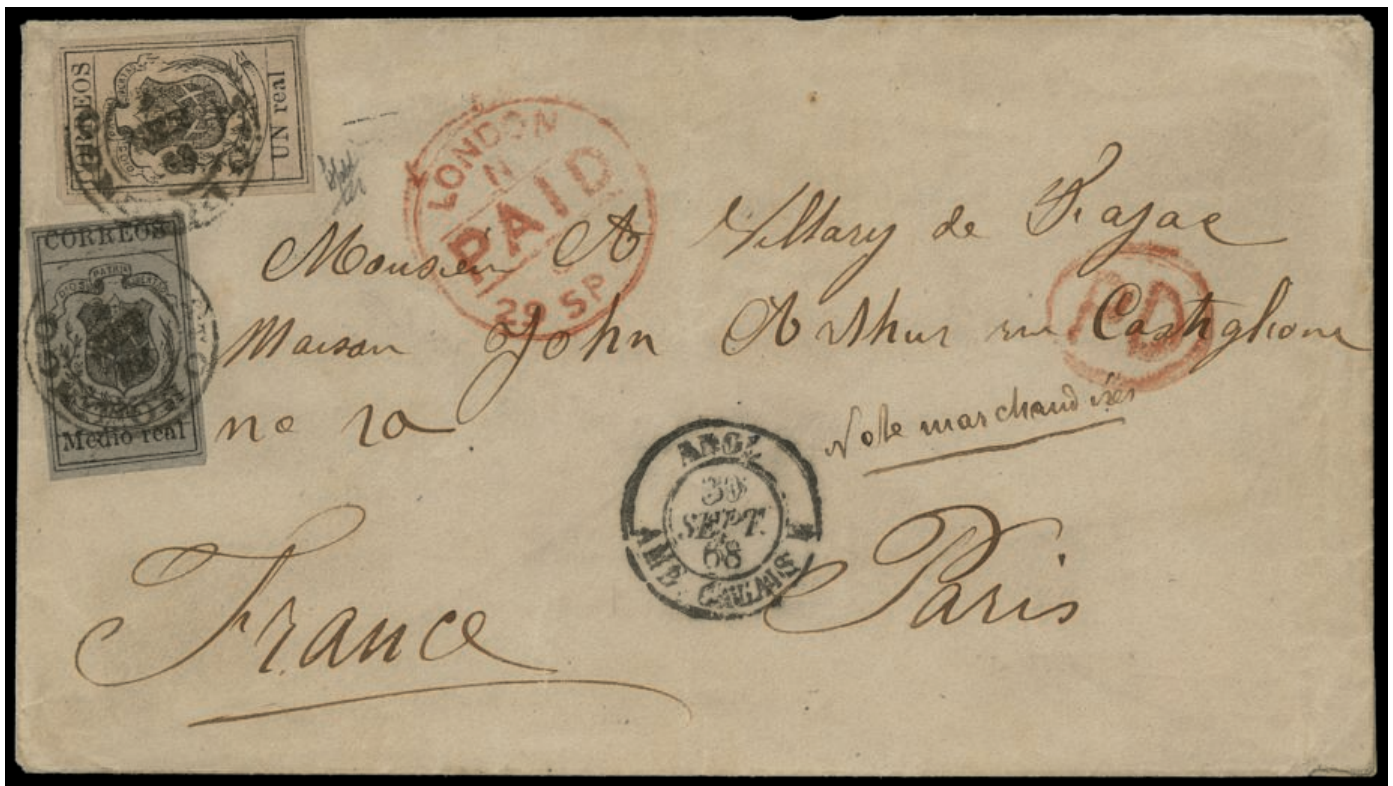 CORREOS
UN real
CORREOS
DIOS PATRIA LIBERTAD
Medio real
LONDON
N
PAID
29 SP
PD
Monsieur A Villary de Fajac
Maison John Arthur rue Castiglione
no 10
Note marchandises
ANGL.
30
SEPT.
68
AMB. CALAIS
France
Paris